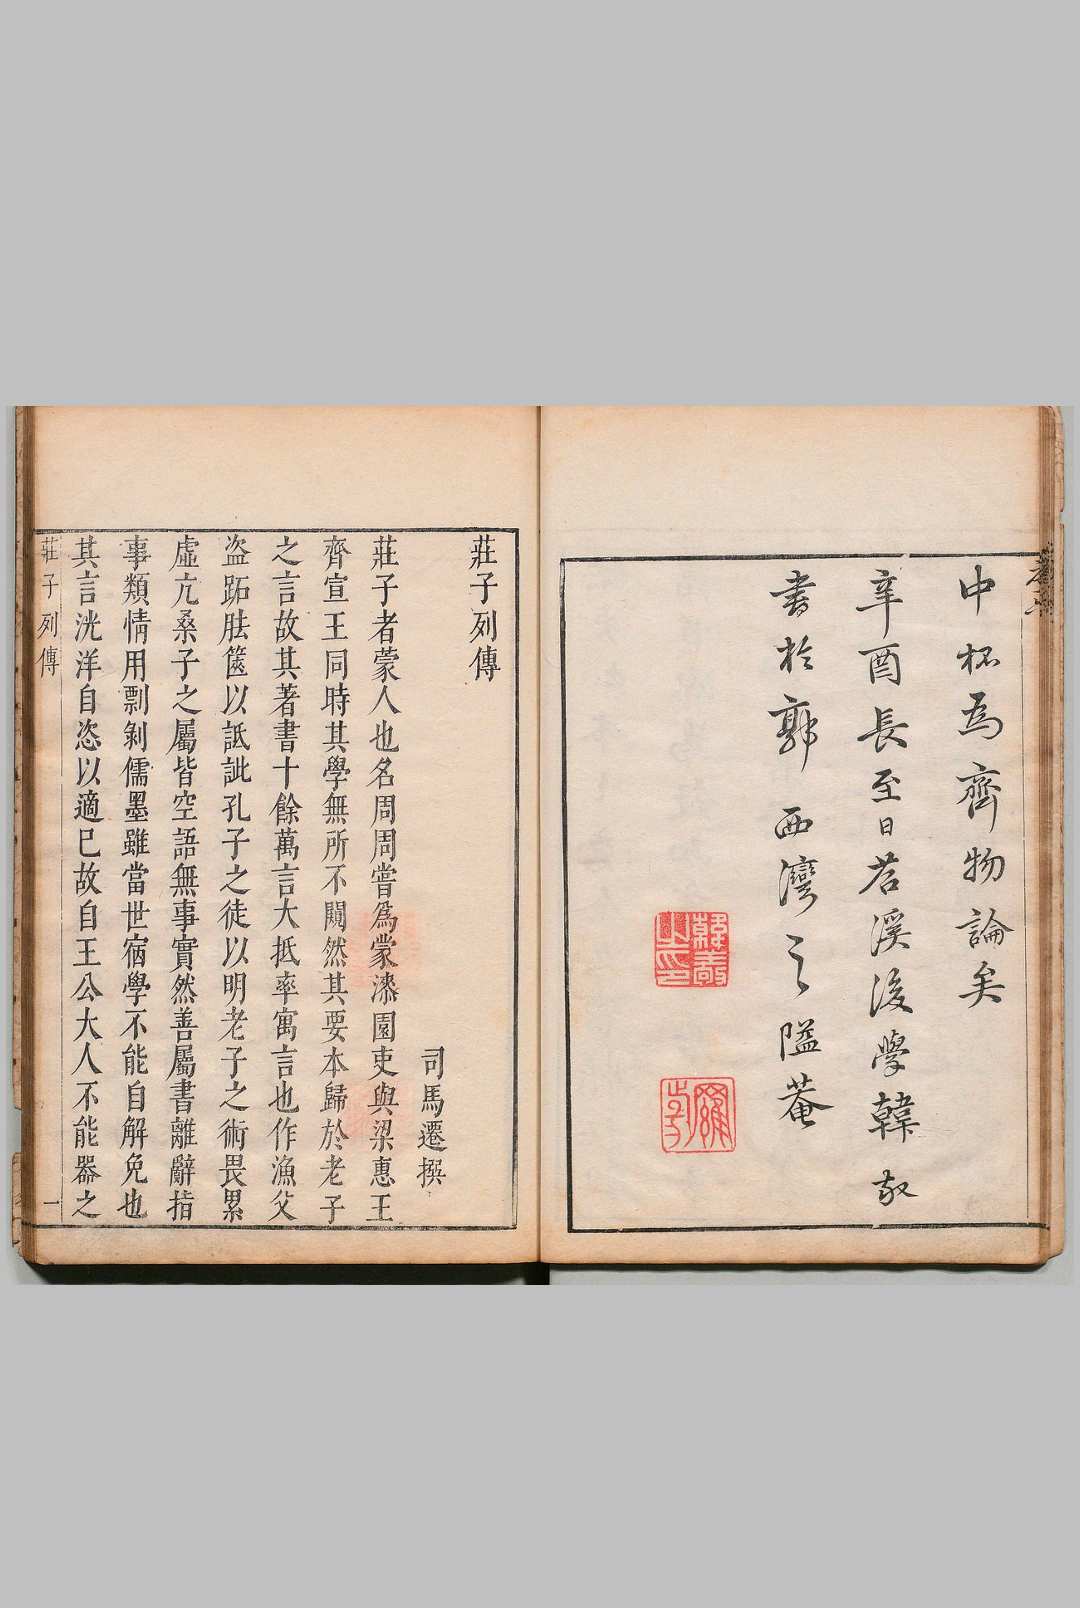 中杯為齊物論矣
辛酉長至日苕溪後學韓敬
書於郭西灣之隘菴
韓敬之印
莊子列傳
司馬遷撰
莊子者蒙人也名周周嘗爲蒙漆園吏與梁惠王
齊宣王同時其學無所不闚然其要本歸於老子
之言故其著書十餘萬言大抵率寓言也作漁父
盜跖胠篋以詆訿孔子之徒以明老子之術畏累
虛亢桑子之屬皆空語無事實然善屬書離辭指
事類情用剽剝儒墨雖當世宿學不能自解免也
其言洸洋自恣以適已故自王公大人不能器之
莊子列傳
一